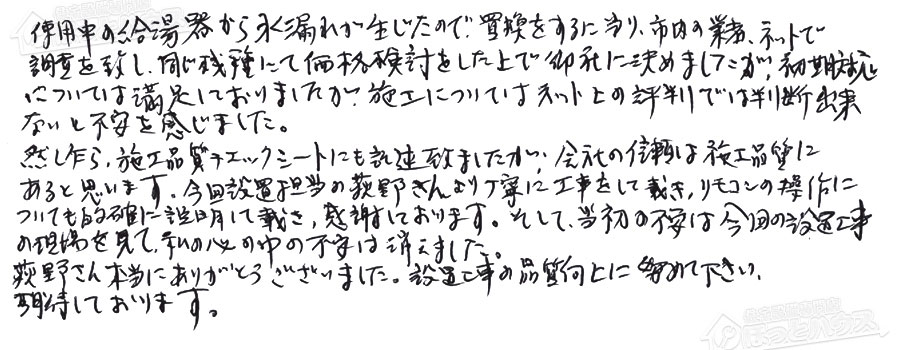 使用中の給湯器から水漏れが生じたので、置換をするに当り、市内の業者、ネットで
調査を致し、同じ機種にて価格検討をした上で御社に決めましたが、初期対応
については満足しておりましたが、施工についてはネット上の評判では判断出来
ないと不安を感じました。
然し乍ら、施工品質チェックシートにも記述致ましたが、会社の信頼は施工品質に
あると思います。今回設置担当の荻野さんより丁寧に工事をして戴き、リモコンの操作に
ついても的確に説明して戴き、感謝しております。そして、当初の不安は今回の設置工事
の現場を見て、私の心の中の不安は消えました。
荻野さん本当にありがとうございました。設置工事の品質向上に努めて下さい、
期待しております。